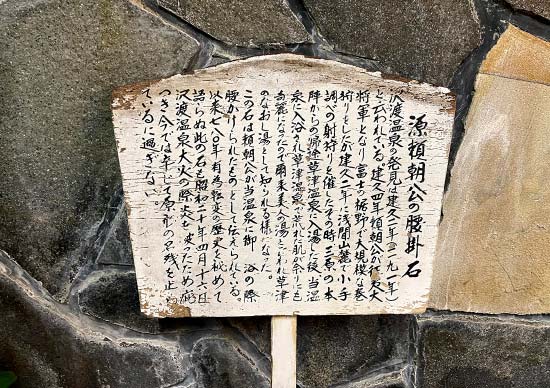 源頼朝公の腰掛石
沢渡温泉の発見は建久二年(一一九一年)
と云われている。建久四年頼朝公が征夷大
将軍となり富士の裾野で大規模な巻
狩りをしたが建久二年に浅間山麓で小手
調べの射狩りを催したその時三原の本
陣からの帰途草津温泉に入湯した後、当温
泉に入浴され草津温泉で荒れた肌が余りにも
綺麗になったので爾来美人の湯といわれ草津
のなおし湯として知られる様になった。
この石は頼朝公が当温泉に御入浴の際
腰かけられたものとして伝えられている。
以来七八〇年有為転変の歴史を秘めて
語らぬ此の石も昭和二十年四月十六日
沢渡温泉大火の際炎を被ったため傷
つき今では辛じて原形の名残を止め
ているに過ぎない